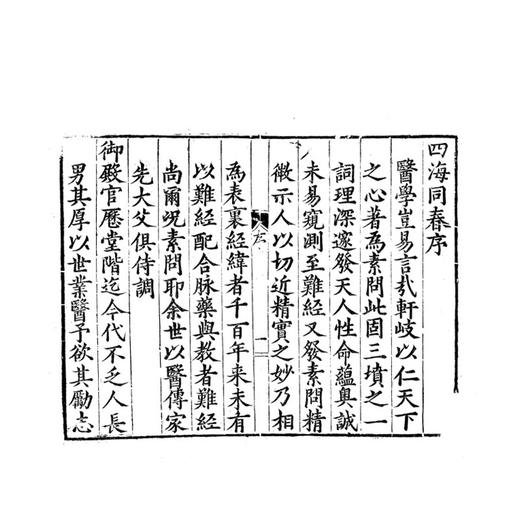 四海同春序
醫學豈易言㢤軒岐以仁天下
之心著為素問此固三墳之一
詞理深邃發天人性命蘊奧誠
未易窺測至難經又發素問精
微示人以切近精實之妙乃相
序
一
為表裏經緯者千百年来未有
以難經配合脉藥與教者難經
尚爾况素問耶余世以醫傳家
先大父俱侍調
御殿官歷堂階迄今代不乏人長
男其厚以世業醫予欲其勵志